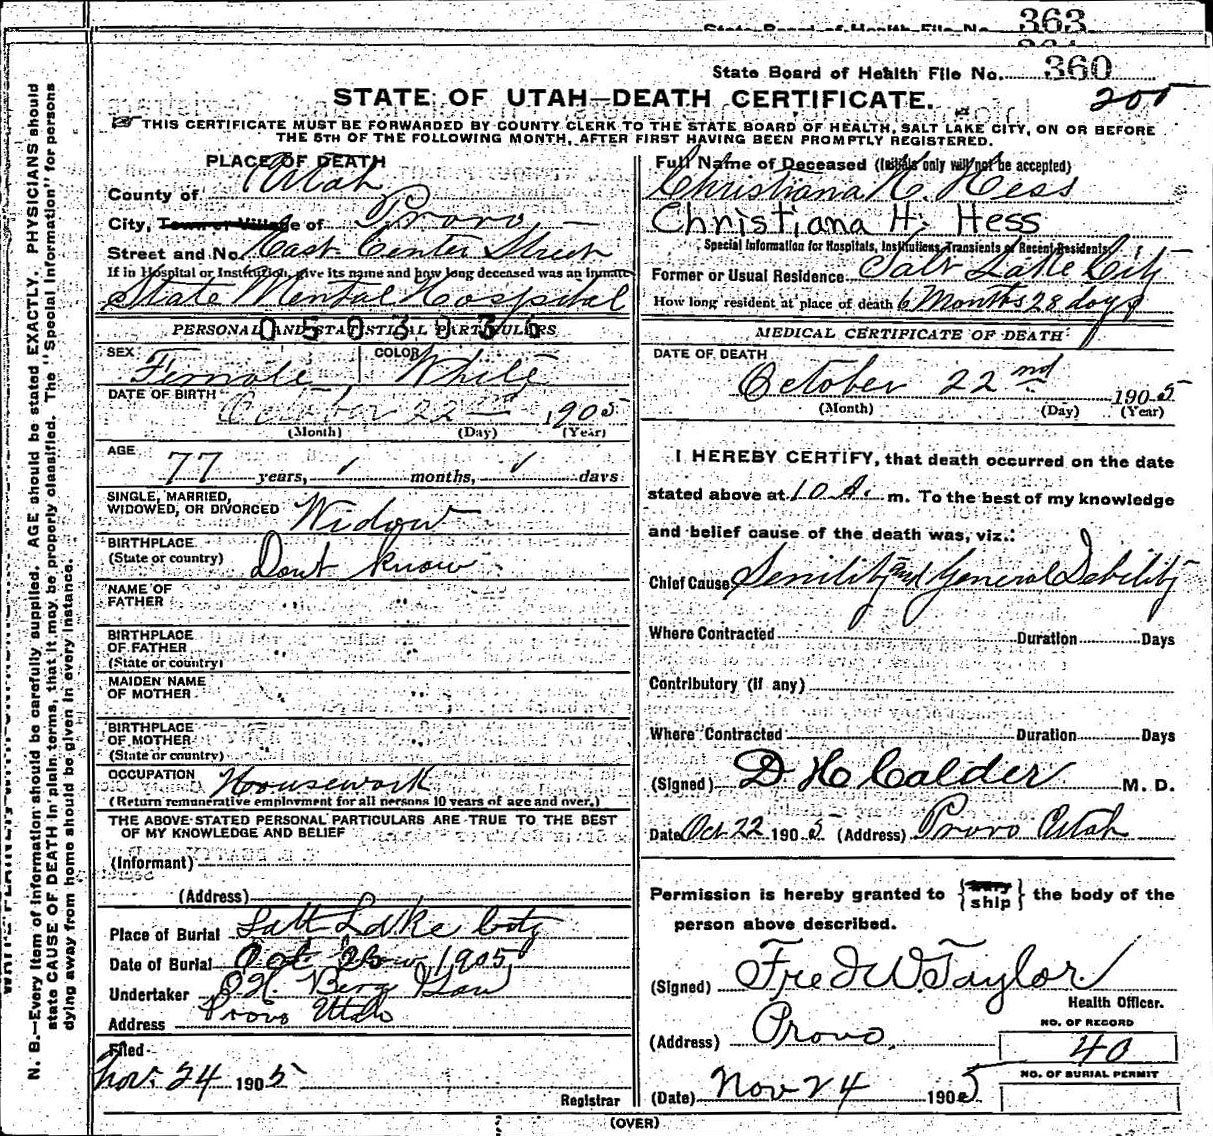 363
State Board of Health File No.
State Board of Health File No. 360
STATE OF UTAH—DEATH CERTIFICATE.
205
THIS CERTIFICATE MUST BE FORWARDED BY COUNTY CLERK TO THE STATE BOARD OF HEALTH, SALT LAKE CITY, ON OR BEFORE
THE 5TH OF THE FOLLOWING MONTH, AFTER FIRST HAVING BEEN PROMPTLY REGISTERED.
N. B.—Every item of information should be carefully supplied. AGE should be stated EXACTLY. PHYSICIANS should
state CAUSE OF DEATH in plain terms, that it may be properly classified. The "Special Information" for persons
dying away from home should be given in every instance.
PLACE OF DEATH
County of Utah
City, Town or Village of Provo
Street and No. East Center Street
If in Hospital or Institution, give its name and how long deceased was an inmate
State Mental Hospital
PERSONAL AND STATISTICAL PARTICULARS
SEX Female COLOR White
DATE OF BIRTH October 22nd 1905
(Month) (Day) (Year)
AGE
77 years, months, days
SINGLE, MARRIED,
WIDOWED, OR DIVORCED Widow
BIRTHPLACE
(State or country) Dont know
NAME OF
FATHER " "
BIRTHPLACE
OF FATHER " "
(State or country)
MAIDEN NAME
OF MOTHER " "
BIRTHPLACE
OF MOTHER " "
(State or country)
OCCUPATION Housework
(Return remunerative employment for all persons 10 years of age and over.)
THE ABOVE STATED PERSONAL PARTICULARS ARE TRUE TO THE BEST
OF MY KNOWLEDGE AND BELIEF
(Informant)
(Address)
Place of Burial Salt Lake City
Date of Burial Oct 1905
Undertaker O.H. Berg
Address Provo Utah
Filed
Nov. 24 1905
Registrar
Full Name of Deceased (Initials only will not be accepted)
Christiana H. Hess
Christiana H. Hess
Special Information for Hospitals, Institutions, Transients or Recent Residents
Former or Usual Residence Salt Lake City
How long resident at place of death 6 Months 28 days
MEDICAL CERTIFICATE OF DEATH
DATE OF DEATH
October 22nd 1905
(Month) (Day) (Year)
I HEREBY CERTIFY, that death occurred on the date
stated above at 10 A. m. To the best of my knowledge
and belief cause of the death was, viz.:
Chief Cause Senility and General Debility
Where Contracted Duration Days
Contributory (if any)
Where Contracted Duration Days
(Signed) D H Calder M. D.
Date Oct 22 1905 (Address) Provo Utah
Permission is hereby granted to {bury ship} the body of the
person above described.
(Signed) Fred W Taylor
Health Officer.
(Address) Provo.
NO. OF RECORD
40
NO. OF BURIAL PERMIT
(Date) Nov 24 1905
(OVER)